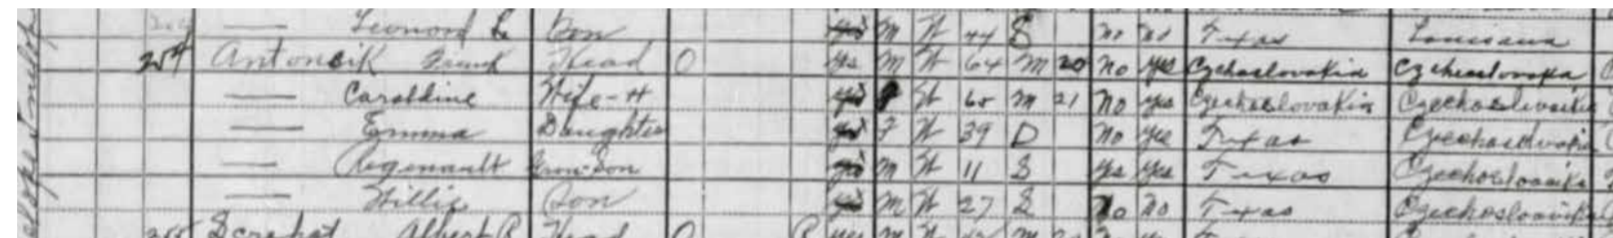 Leonard L Son yes M W 44 S No No Texas Louisiana
204 Antoncik Frank Head O yes M W 64 M 20 No yes Czechoslovakia Czechoslovakia
Caroldine Wife-H yes F W 60 M 21 No yes Czechoslovakia Czechoslovakia
Emma Daughter yes F W 39 D No yes Texas Czechoslovakia
Regenault Gran-Son yes M W 11 S yes yes Texas Czechoslovakia
Willie Son yes M W 27 S No No Texas Czechoslovakia
205 Albert Head O R yes M W